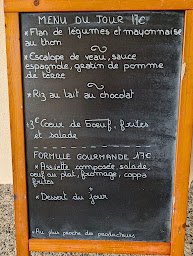 MENU DU JOUR 17€
* Flan de légumes et mayonnaise
au thon
* Escalope de veau, sauce
espagnole, gratin de pomme
de terre
* Riz au lait au chocolat
Coeur de boeuf, frites
et salade
FORMULE GOURMANDE 17€
* Assiette composée salade,
oeuf au plat, fromage, coppa
frites
* Dessert du jour
* Au plus proche des producteurs